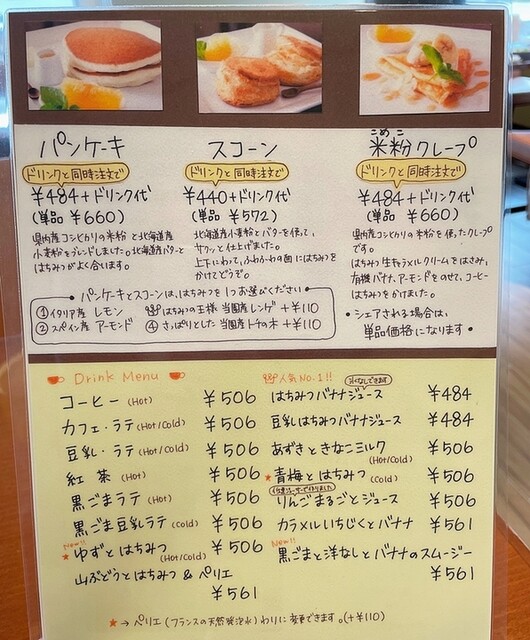 パンケーキ
ドリンクと同時注文で
¥484+ドリンク代
(単品 ¥660)
県内産コシヒカリの米粉と北海道産
小麦粉をブレンドしました。北海道産バターと
はちみつがよく合います。
スコーン
ドリンクと同時注文で
¥440+ドリンク代
(単品 ¥572)
北海道産小麦粉とバターを使い、
サクッと仕上げました。
上下にわって、ふわふわの面にはちみつを
かけてどうぞ。
こめこ
米粉クレープ
ドリンクと同時注文で
¥484+ドリンク代
(単品 ¥660)
県内産コシヒカリの米粉を使ったクレープ
です。
はちみつ生キャラメルクリームをはさみ、
有機バナナ、アーモンドをのせて、コーヒー
はちみつをかけました。
・シェアされる場合は、
単品価格になります・
パンケーキとスコーンは、はちみつを1つお選びください
①イタリア産 レモン
②スペイン産 アーモンド
③はちみつの王様 当国産レンゲ+¥110
④さっぱりとした 当国産トチの木+¥110
Drink Menu
コーヒー (Hot) ¥506
カフェ・ラテ (Hot/Cold) ¥506
豆乳・ラテ (Hot/Cold) ¥506
紅茶 (Hot) ¥506
黒ごまラテ (Hot) ¥506
黒ごま豆乳ラテ (Cold) ¥506
New!!
★ゆずとはちみつ (Hot/Cold) ¥506
山ぶどうとはちみつ&ペリエ
¥561
人気No.1!!
氷なしできます
はちみつバナナジュース ¥484
豆乳はちみつバナナジュース ¥484
あずきときなこミルク (Hot/Cold) ¥506
★青梅とはちみつ (Cold) ¥506
りんごまるごとジュース ¥506
カラメルいちじくとバナナ ¥561
New!!
黒ごまと洋なしとバナナのスムージー
¥561
★→ペリエ(フランスの天然発泡水)わりに変更できます。(+¥110)